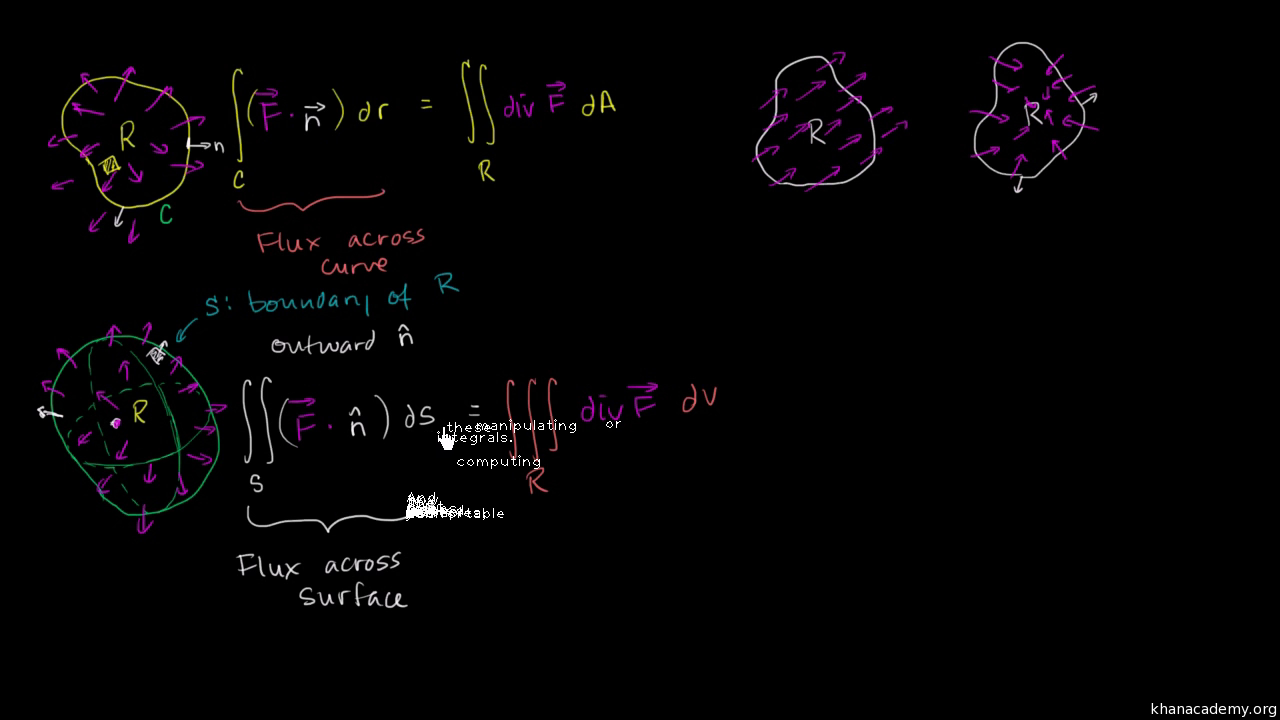 R
n
C
∫_C (F⃗ · n⃗) dr = ∬_R div F⃗ dA
Flux across
curve
R
R
S: boundary of R
outward n̂
R
∬_S (F⃗ · n̂) dS = ∭_R div F⃗ dV
these manipulating or
integrals.
computing
And
Flux across
surface
khanacademy.org